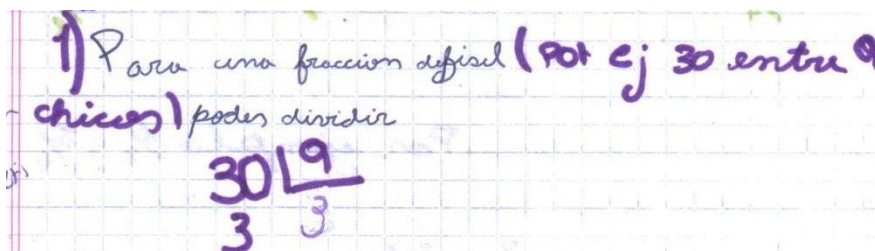 1) Para una fraccion defisil (por ej 30 entre 9
chicos) podes dividir
30 9
3 3